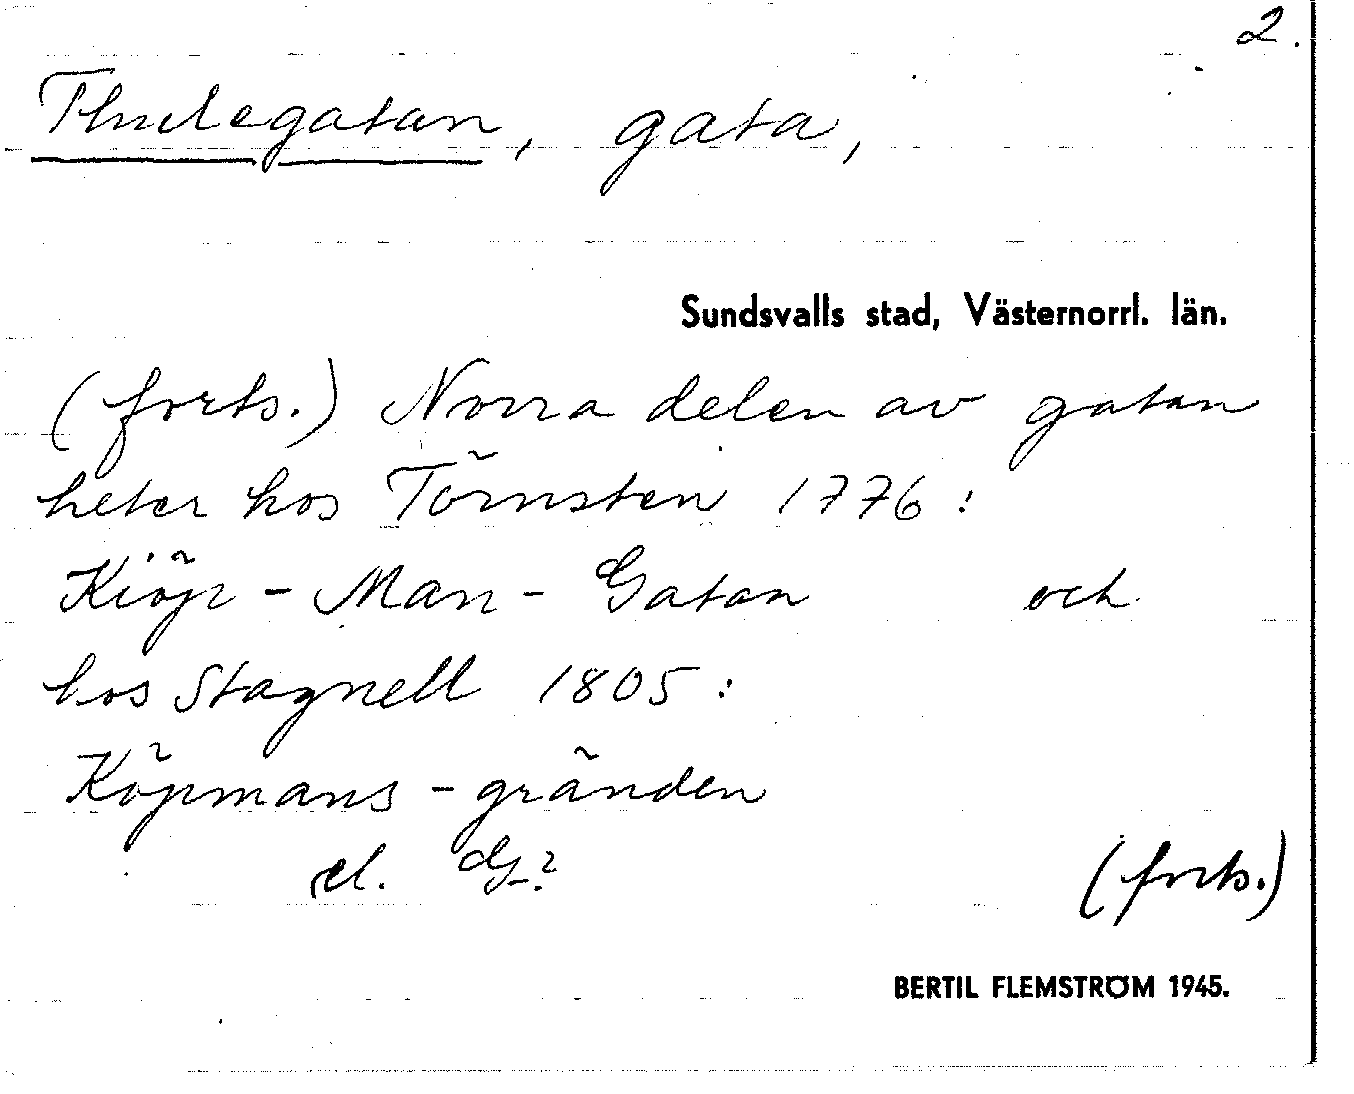 2.
Thulegatan, gata,
Sundsvalls stad, Västernorrl. län.
(forts.) Norra delen av gatan
heter hos Törnsten 1776:
Kiöp-Man-Gatan och
hos Stagnell 1805:
Köpmans-gränden
el. G-?
(forts.)
BERTIL FLEMSTRÖM 1945.